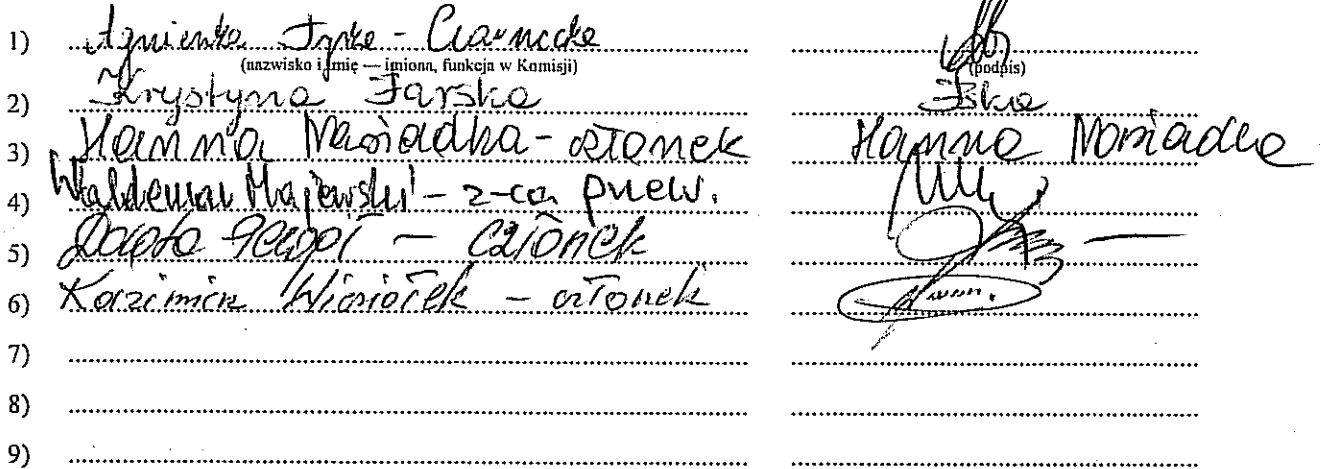 1) Agnieszka - Czarnecka
(nazwisko i imię — imiona, funkcja w Komisji) (podpis)
2) Krystyna Jarska
3) Hanna Nasiadka - członek Hanna Nasiadka
4) Waldemar Majewski - z-ca przew.
5) Dorota - członek
6) Kazimierz Wisiołek - członek
7)
8)
9)